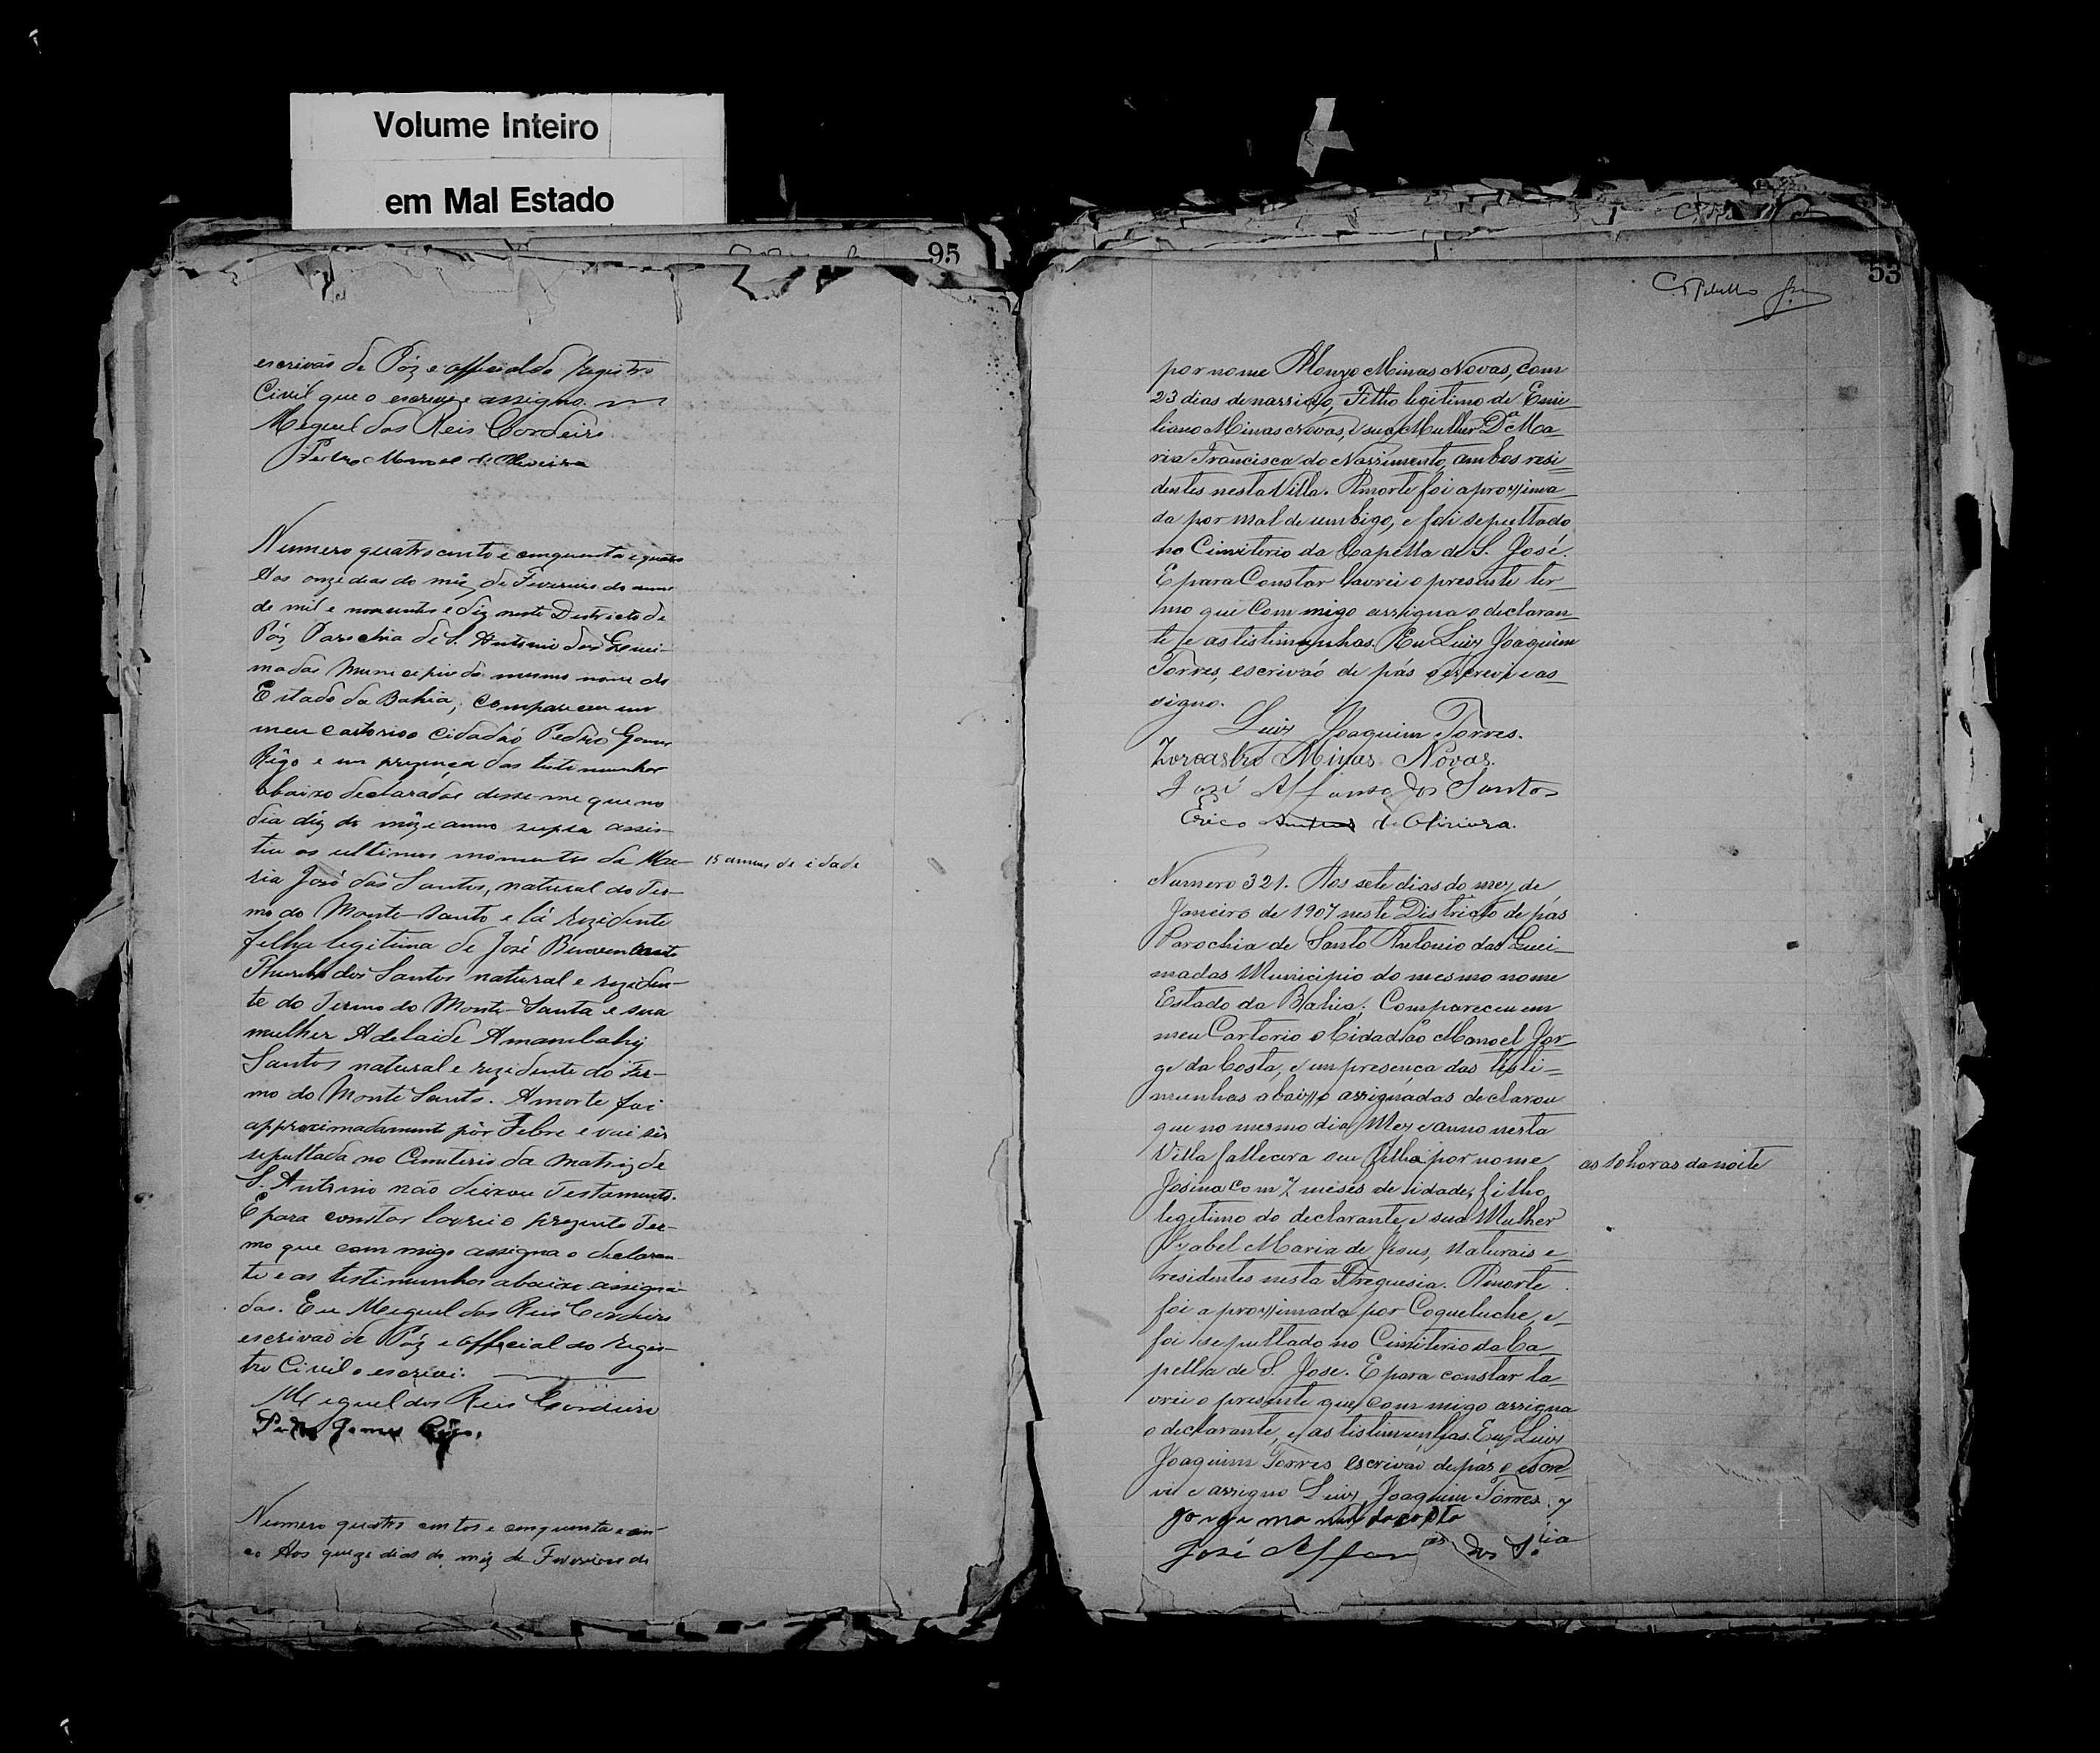 Volume Inteiro
em Mal Estado
95
escrivão de Páz e official do registro
Civil que o escrevi e assigno.
Meguel dos Reis Cordeiro
Pedro Manoel de Oliveira
Numero quatro cento e cinquenta e quatro
Aos onze dias do mêz de Fevereiro do anno
de mil e novecentos e diz neste Districto de
Páz Parochia de S. Antonio das Quei-
madas Municipio do mesmo nome do
Estado da Bahia; compareceu em
meu cartorio o cidadaó Pedro Gomes
Rêgo e em prezença das testimunhas
abaixo declaradas disse-me que no
dia diz do mêz e anno supra assis-
tiu os ultimos momentos de Ma-
15 annos de idade
ria José dos Santos, natural do Ter-
mo do Monte-Santo e lá rezidente
filha legitima de José
dos Santos natural e reziden-
te do Termo do Monte-Santo e sua
mulher Adelaide
Santos natural e rezidente do Ter-
mo do Monte Santo. A morte foi
approximadamente pôr Febre e vai sêr
sepultada no Cemiterio da Matriz de
S. Antonio não deixou Testamento.
E para constar lavrei o prezente Ter-
mo que com migo assigna o declaran-
te e as testimunhas abaixo assigna-
das. Eu Meguel dos Reis Cordeiro
escrivaó de Páz e official do regis-
tro Civil o escrivi.
Meguel dos Reis Cordeiro
Pedro Gomes Rêgo.
Numero quatro centos e cinquenta e cin-
co Aos quinze dias do mêz de Fevereiro do
53
por nome Alonzo Minas Novas, com
23 dias de nassido, Filho legitimo de Emi-
liano Minas Novas, e sua Mulher Dª Ma-
ria Francisca do Nassimento, ambos resi-
dentes nesta Villa. A morte foi aproxima-
da por mal de umbigo, e foi sepultado
no Cimiterio da Capella de S. José.
E para Constar lavrei o presente ter-
mo que Com migo assigna o declaran-
te e as tistimunhas. Eu Luiz Joaquim
Torres, escrivaó de pás o escrevi e as-
signo.
Luiz Joaquim Torres.
Zoroastro Minas Novas.
José Affonso dos Santos
Erico de Oliveira.
Numero 321. Aos sete dias do mez de
Janeiro de 1907 neste Districto de pás
Parochia de Santo Antonio das Quei-
madas Municipio do mesmo nome
Estado da Bahia; Compareceu em
meu Cartorio o Cidadão Manoel Jor-
ge da Costa, e em presença das tisti-
munhas abaixo assignadas declarou
que no mesmo dia Mez e anno nesta
Villa fallecera seu filha por nome
as 10 horas da noite
Josina com 7 meses de idade, filho
legitimo do declarante, e sua Mulher
Izabel Maria de Jesus, Naturais e
residentes nesta Freguesia. A morte
foi aproximada por Coqueluche, e
foi sepultado no Cimiterio da Ca-
pella de S. Jose. E para constar la-
vrei o presente que com migo assigna
o declarante, e as tistimunhas. Eu, Luiz
Joaquim Torres escrivaó de pás o escre-
vi e assigno Luiz Joaquim Torres.
José Affon